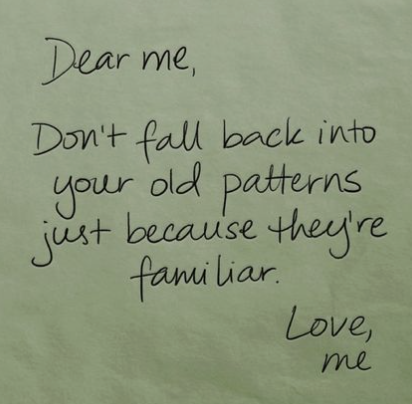 Dear me,
Don't fall back into
your old patterns
just because they're
familiar.
Love,
me